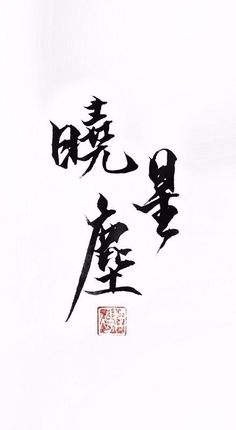 曉星塵